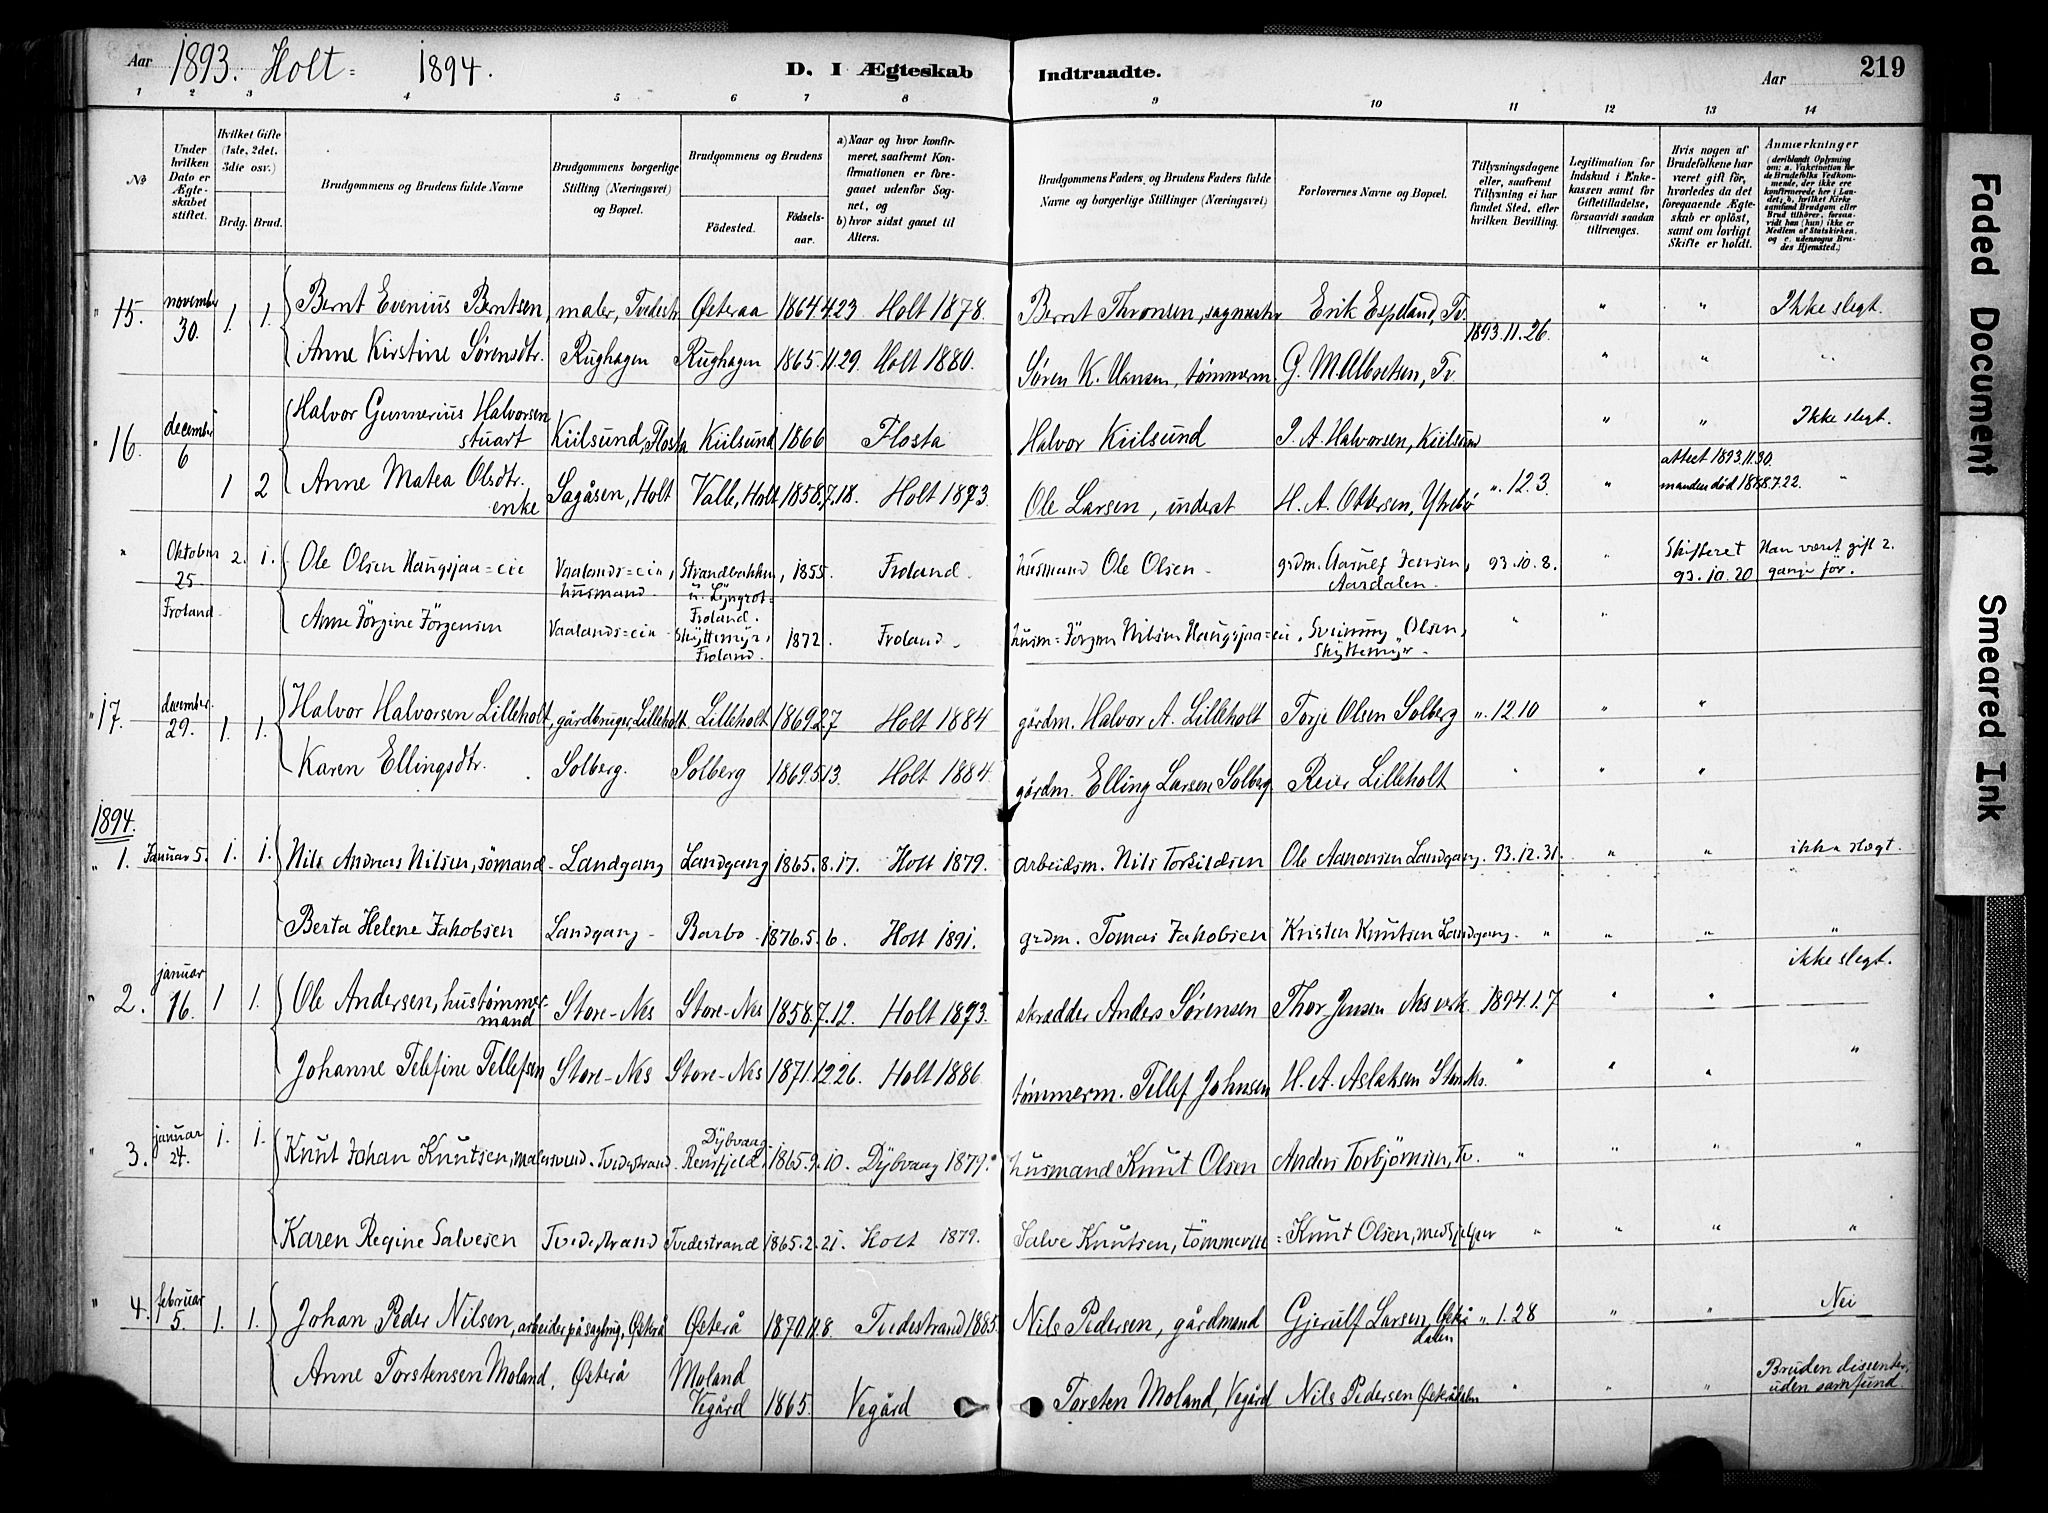 Aar 1893. Holt = 1894. D. I Ægteskab Indtraadte. Aar 219
1 2 3 4 5 6 7 8 9 10 11 12 13 14
№
Under hvilken Dato er Ægteskabet stiftet.
Hvilket Gifte (1ste, 2det, 3die osv.)
Brdg. Brud.
Brudgommens og Brudens fulde Navne
Brudgommens borgerlige Stilling (Næringsvei) og Bopæl.
Brudgommens og Brudens
Fødested. Fødselsaar.
a) Naar og hvor konfirmeret, saafremt Konfirmationen er foregaaet udenfor Sognet, og
b) hvor sidst gaaet til Alters.
Brudgommens Faders og Brudens Faders fulde Navne og borgerlige Stillinger (Næringsvei)
Forlovernes Navne og Bopæl.
Tillysningsdagene eller, saafremt Tillysning ei har fundet Sted, efter hvilken Bevilling.
Legitimation for Indskud i Enkekassen samt for Giftetilladelse, forsaavidt saadan tiltrænges.
Hvis nogen af Brudefolkene har været gift før, hvorledes da det foregaaende Ægteskab er opløst, samt om lovligt Skifte er holdt.
Anmærkninger (deriblandt Oplysning om: a. Vakcination for de Brudefolks Vedkommende, der ikke ere konfirmerede her i Landet; b. hvilket Kirkesamfund Brudgom eller Brud tilhører, forsaavidt han (hun) ikke er Medlem af Statskirken, og c. udensogns Brudes Hjemsted.)
" 15. november 30. 1. 1. Bernt Evenius Berntsen, maler, Tvedestr. Østeraa 1864.4.23 Holt 1878. Bernt Thronsen, sagmester Erik Espeland, Tv. 1893.11.26. " " Ikke slegt.
Anne Kirstine Sørensdtr. Rughagen Rughagen 1865.11.29. Holt 1880. Søren K. Hansen, tømmerm. G. M. Albretsen, Tv. " " "
" 16. december 6 Halvor Gunnerius Halvorsen stuart Kiilsund, Flosta Kiilsund 1866 Flosta Halvor Kiilsund P. A. Halvorsen, Kiilsund " " Ikke slegt.
1 2 Anne Matea Olsdtr. enke Sagåsen, Holt Valle, Holt 1858.7.18. Holt 1873. Ole Larsen, inderst H. A. Ottersen, Ytrebø ". 12.3. " attest 1893.11.30. manden død 1888.7.22. "
" Oktober 25 Froland. 2. 1. Ole Olsen Haugsjaa=eie Vaalands=eie, husmand. Strandbakken u. Lyngrot= Froland. 1855. Froland. husmand Ole Olsen. grdm. Aanulf Jensen, Aardalen. 93.10.8. " Skifteret 93.10.20 Han været gift 2. gange før.
Anne Jörgine Jörgensen Vaalands=eie. Skyttemyr, Froland. 1872. Froland. husm= Jörgen Nilsen Haugsjaa=eie. Sveinung Olsen, Skyttemyr. " "
" 17. december 29. 1. 1. Halvor Halvorsen Lilleholt, gårdbruger, Lilleholt. Lilleholt 1869.2.7 Holt 1884 gårdm. Halvor A. Lilleholt Torje Olsen Solberg ". 12.10 " "
Karen Ellingsdtr. Solberg. Solberg 1869.5.13. Holt 1884. gårdm. Elling Larsen Solberg Reier Lilleholt " " "
1894.
" 1. Januar 5. 1. 1. Nils Andreas Nilsen, sömand - Landgang Landgang 1865.8.17. Holt 1879. arbeidsm. Nils Torkildsen Ole Aanonsen Landgang. 93.12.31. " " ikke slegt.
Berta Helene Jakobsen Landgang - Barbo - 1876.5.6. Holt 1891. grdm. Tomas Jakobsen Kristen Knutsen Landgang. " " " "
" 2. januar 16. 1 1. Ole Andersen, hustømmermand Store-Nes Store-Nes 1858.7.12. Holt 1873. skrædder Anders Sørensen Thor Jensen Nes verk. 1894.1.7 " " ikke slegt.
Johanne Telefine Tellefsen Store-Nes Store-Nes 1871.12.26. Holt 1886. tømmerm. Tellef Johnsen H. A. Aslaksen Stor Nes. " " " "
" 3. januar 24. 1. 1. Knut Johan Knutsen, malersvend. Tvedestrand. Dÿbvaag. Rensfjeld. 1865.9.10. Dÿbvaag 1879. husmand Knut Olsen Anders Torbjörnsen, Tv. " " " "
Karen Regine Salvesen Tvedestrand Tvedestrand 1865.2.21. Holt 1879. Salve Knutsen, tömmerm = Knut Olsen, medhjelper " " " "
" 4. februar 5. 1. 1. Johan Peder Nilsen, arbeider på sagbrug, Østerå Østerå 1870.11.8. Tvedestrand 1885. Nils Pedersen, gårdmand Gjerulf Larsen, Østerådalen ". 1.28 " " Nei
Anne Torstensen Moland, Østerå Moland Vegård 1865. Vegård Torsten Moland, Vegård Nils Pedersen Østerådalen " " " Bruden dissenter, uden samfund.
Faded Document
Smeared Ink